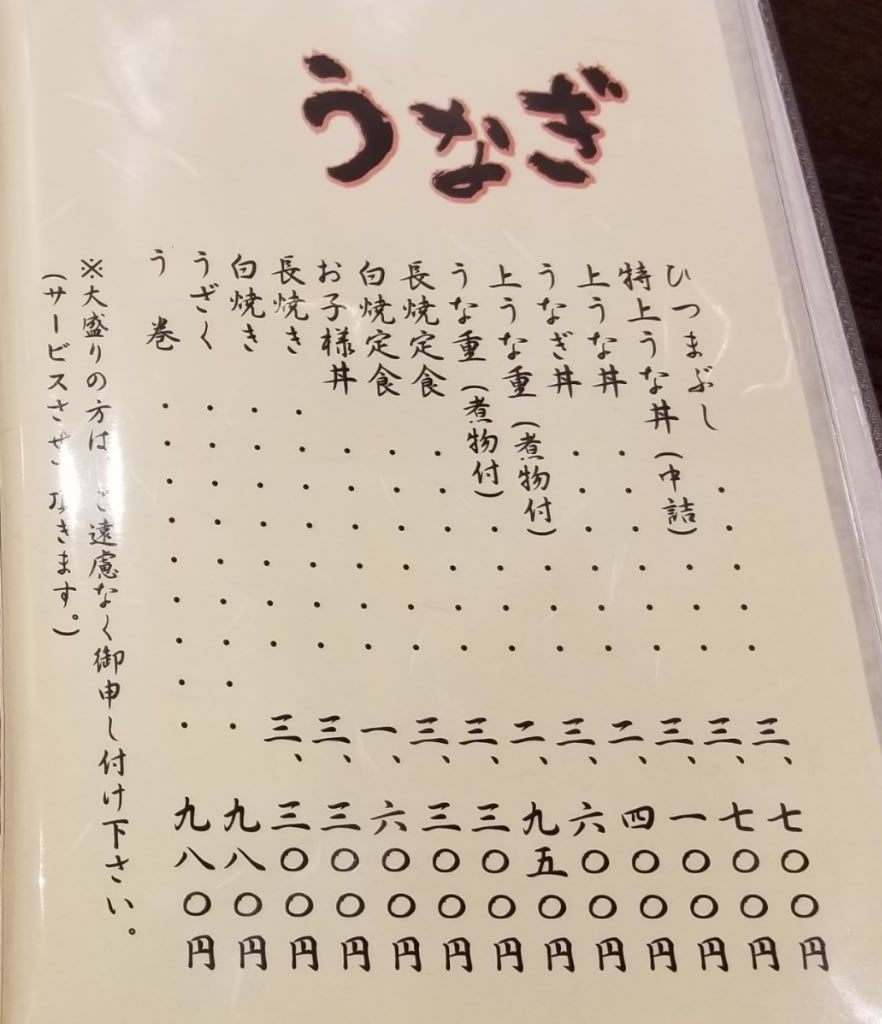 うなぎ
ひつまぶし・・・・・三、七〇〇円
特上うな丼(中詰)・・・三、七〇〇円
上うな丼・・・・・・三、一〇〇円
うなぎ丼・・・・・・二、四〇〇円
上うな重(煮物付)・・・三、六〇〇円
うな重(煮物付)・・・・二、九五〇円
長焼定食・・・・・・三、三〇〇円
白焼定食・・・・・・三、三〇〇円
お子様丼・・・・・・一、六〇〇円
長焼き・・・・・・・三、三〇〇円
白焼き・・・・・・・三、三〇〇円
うざく・・・・・・・・・九八〇円
う巻・・・・・・・・・九八〇円
※大盛りの方は、ご遠慮なく御申し付け下さい。
(サービスさせて頂きます。)